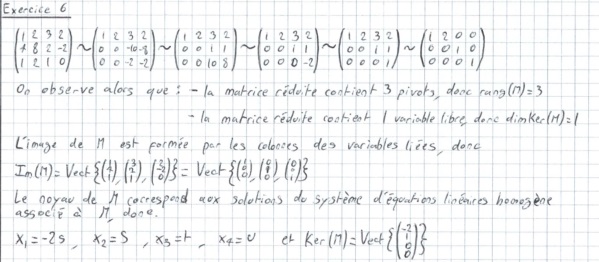 Exercice 6
(1 2 3 2 / 4 8 2 -2 / 1 2 1 0) ~ (1 2 3 2 / 0 0 -10 -8 / 0 0 -2 -2) ~ (1 2 3 2 / 0 0 1 1 / 0 0 10 8) ~ (1 2 3 2 / 0 0 1 1 / 0 0 0 -2) ~ (1 2 3 2 / 0 0 1 1 / 0 0 0 1) ~ (1 2 0 0 / 0 0 1 0 / 0 0 0 1)
On observe alors que : - la matrice réduite contient 3 pivots, donc rang(M)=3
- la matrice réduite contient 1 variable libre, donc dimKer(M)=1
L'image de M est formée par les colonnes des variables liées, donc
Im(M)= Vect{(1 4 1), (3 2 1), (2 -2 0)} = Vect{(1 0 0), (0 1 0), (0 0 1)}
Le noyau de M correspond aux solutions du système d'équations linéaires homogène
associé à M, donc.
x₁=-2s , x₂=s , x₃=t , x₄=0 et Ker(M)=Vect{(-2 1 0 0)}